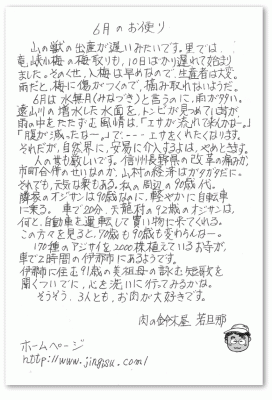 6月のお便り
山の獣の出産が遅いみたいです。里では、
竜峡小梅の梅取りも、10日ばかり遅れて始まり
ました。そのくせ、入梅は早めなので、生産者は大変。
雨だと、梅に傷がつくので、摘み取れないようだ。
6月は水無月(みなづき)と言うのに、雨が多い。
遠山川の増水した水面を、トンビが見つめている時が
雨の中をたたずむ風情は、「エサが流れて来んかなー」
「腹が減ったなー」で、・・・・エサをくれたくなります。
それだが、自然界に、安易に介入するよは、やめときます。
人の世も厳しいです。信州長野県の改革の痛みか、
市町合併のせいなのか、山村の経済はガタガタだに。
それでも、元気な衆もある。私の周辺の90歳代。
隣家のオジサンは90歳なのに、軽やかに自転車
に乗る。車で20分、天龍村の92歳のオジサンは、
何と、自動車を運転して買い物に来てくれる。
この方々を見ると、70歳も90歳も変わらんなー。
170種のアジサイを2000株植えているお寺が、
車で2時間の伊那市にあるようです。
伊那市に住む91歳の美祖母の詠む短歌を
聞くついでに、心を洗いに行ってみるかなー
そうそう、3人とも、お肉が大好きです。
肉の鈴木屋 若旦那
ホームページ
http://www.jingisu.com/